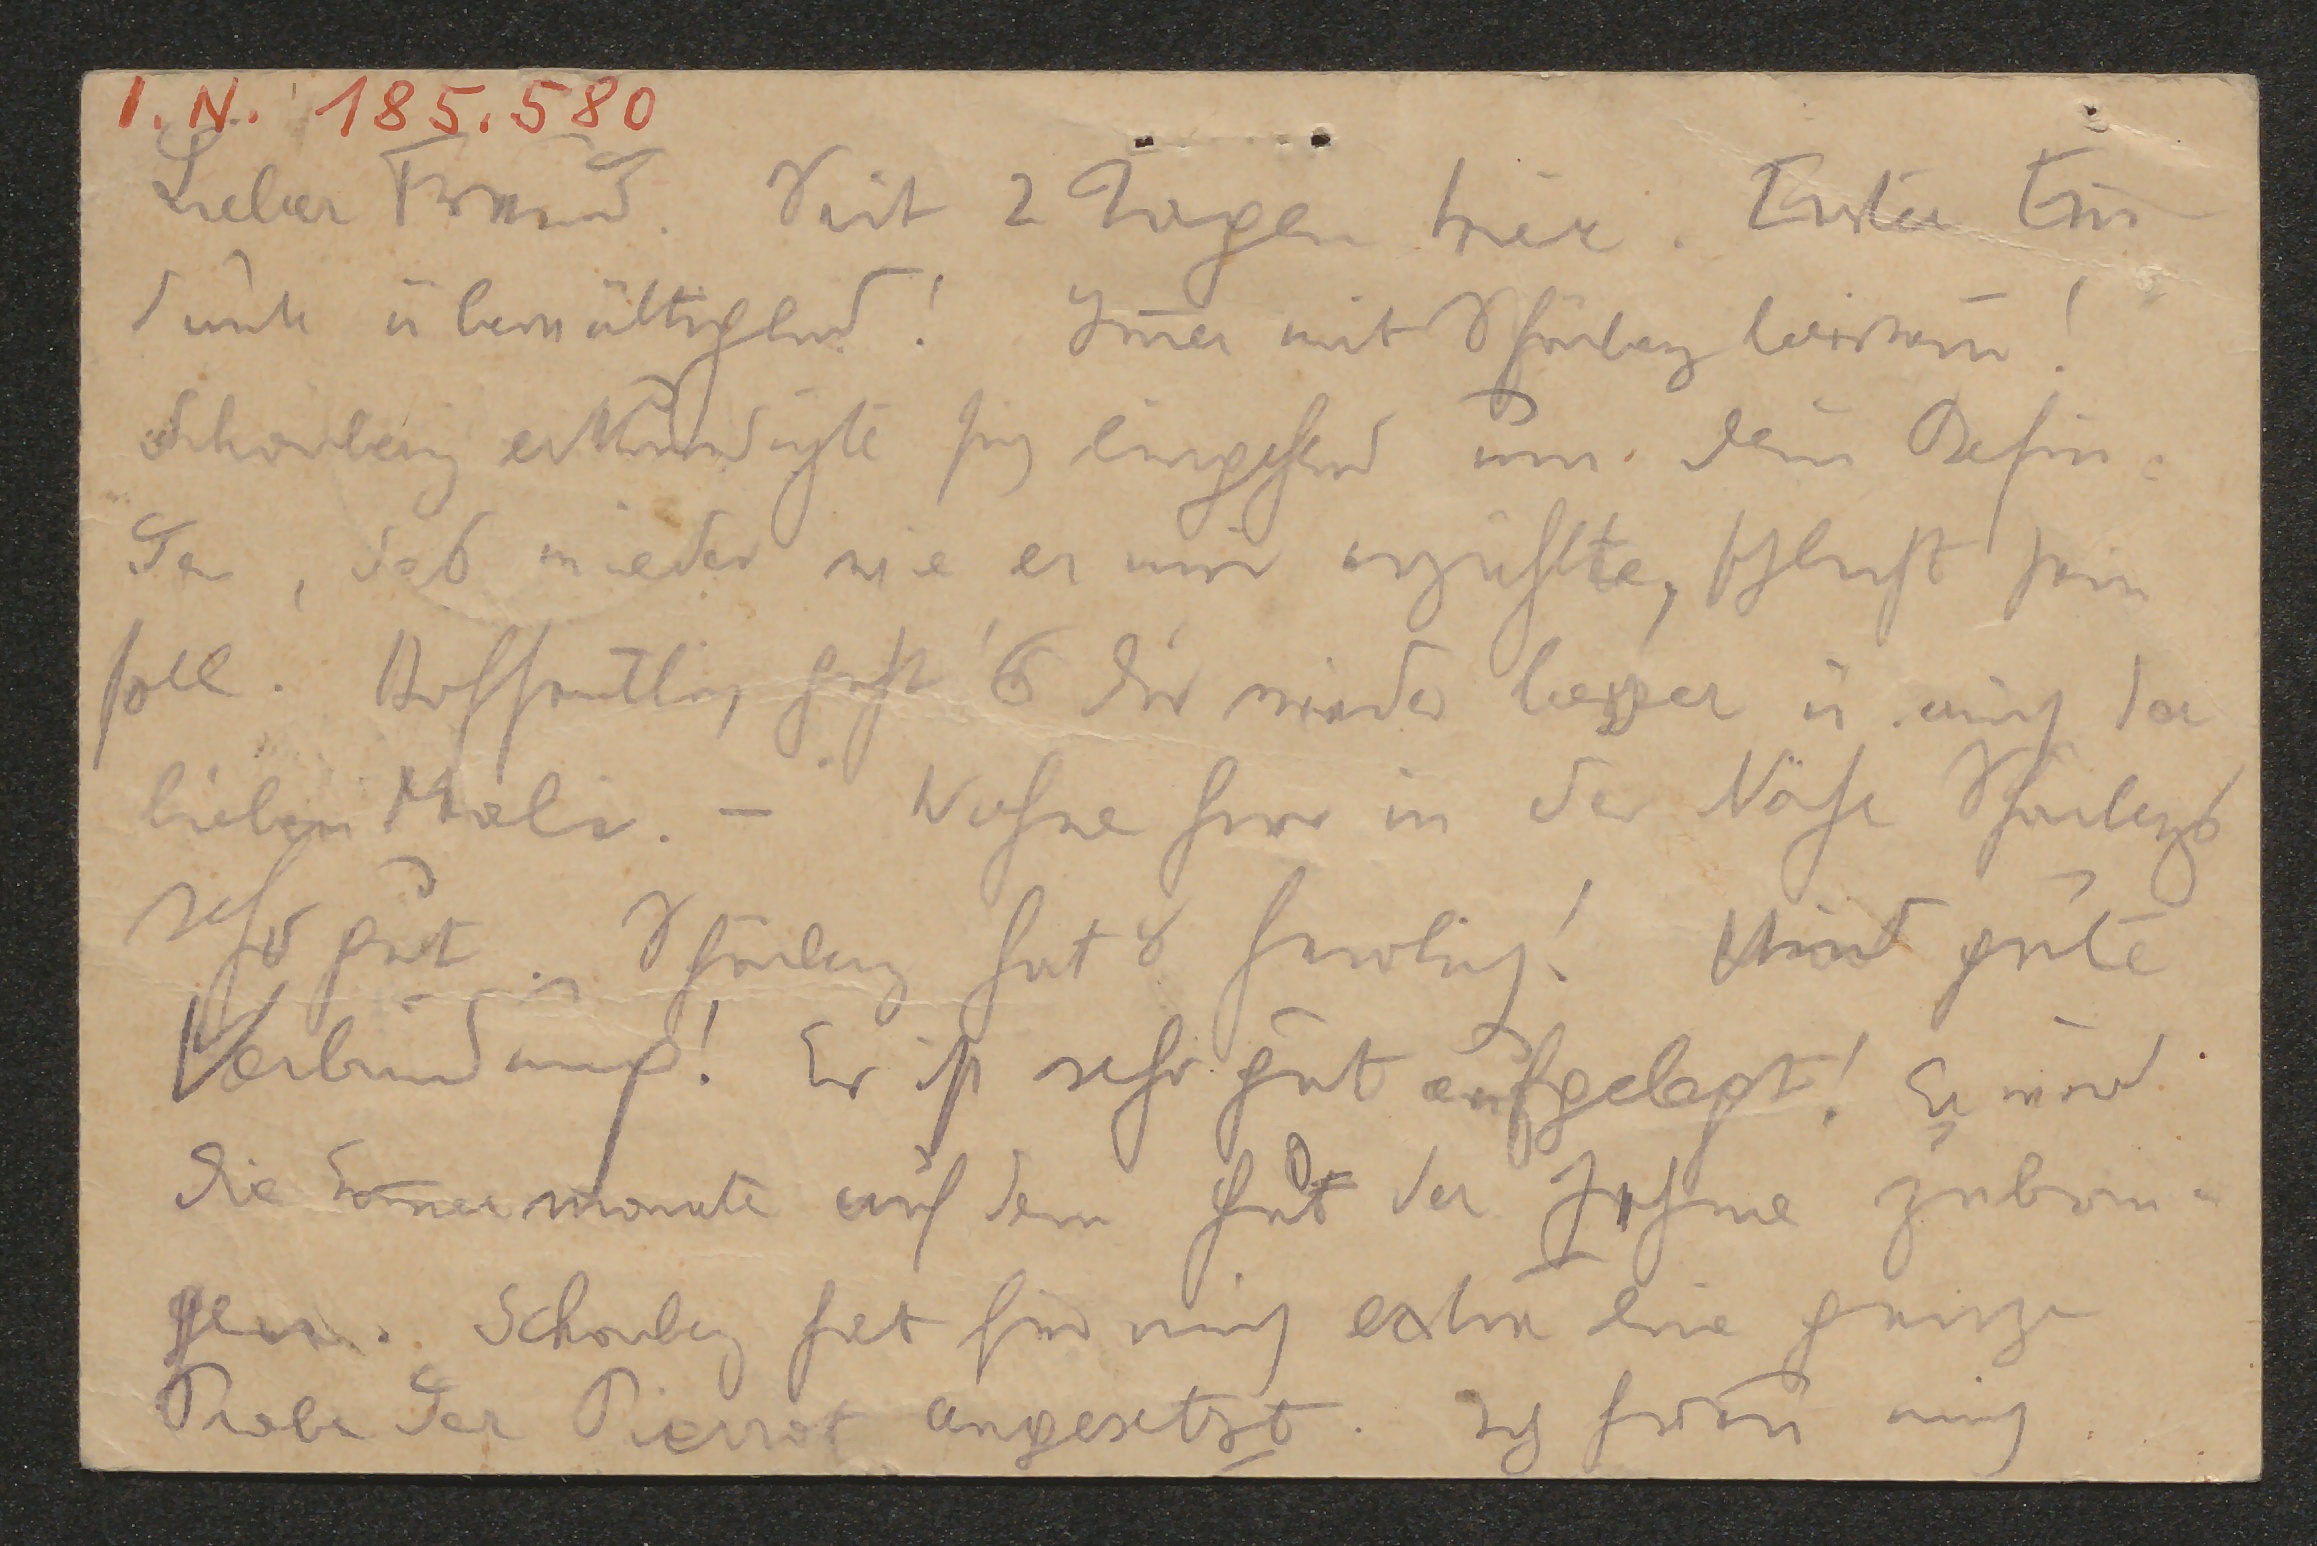 I.N. 185.580
Lieber Freund. Seit 2 Tagen hier. Erster Ein
drück überwältigend! Im̅er mit Schönberg beisam̅!
Schönberg erkundigte sich eingehend um dein Befin-
den, das wieder wie er mir erzählte, schlecht sein
soll. Hoffentlich geht's dir wieder besser u. auch der
lieben Mali. – Wohne hier in der Nähe Schönbergs
sehr gut. Schönberg hat's herrlich! Und gute
Verbindung! Er ist sehr gut aufgelegt! Er wird
die Som̅ermonate auf dem Gut der zubrin-
gen. Schönberg hat für mich extra eine ganze
Probe der Pierrot angesetzt. Ich freue mich